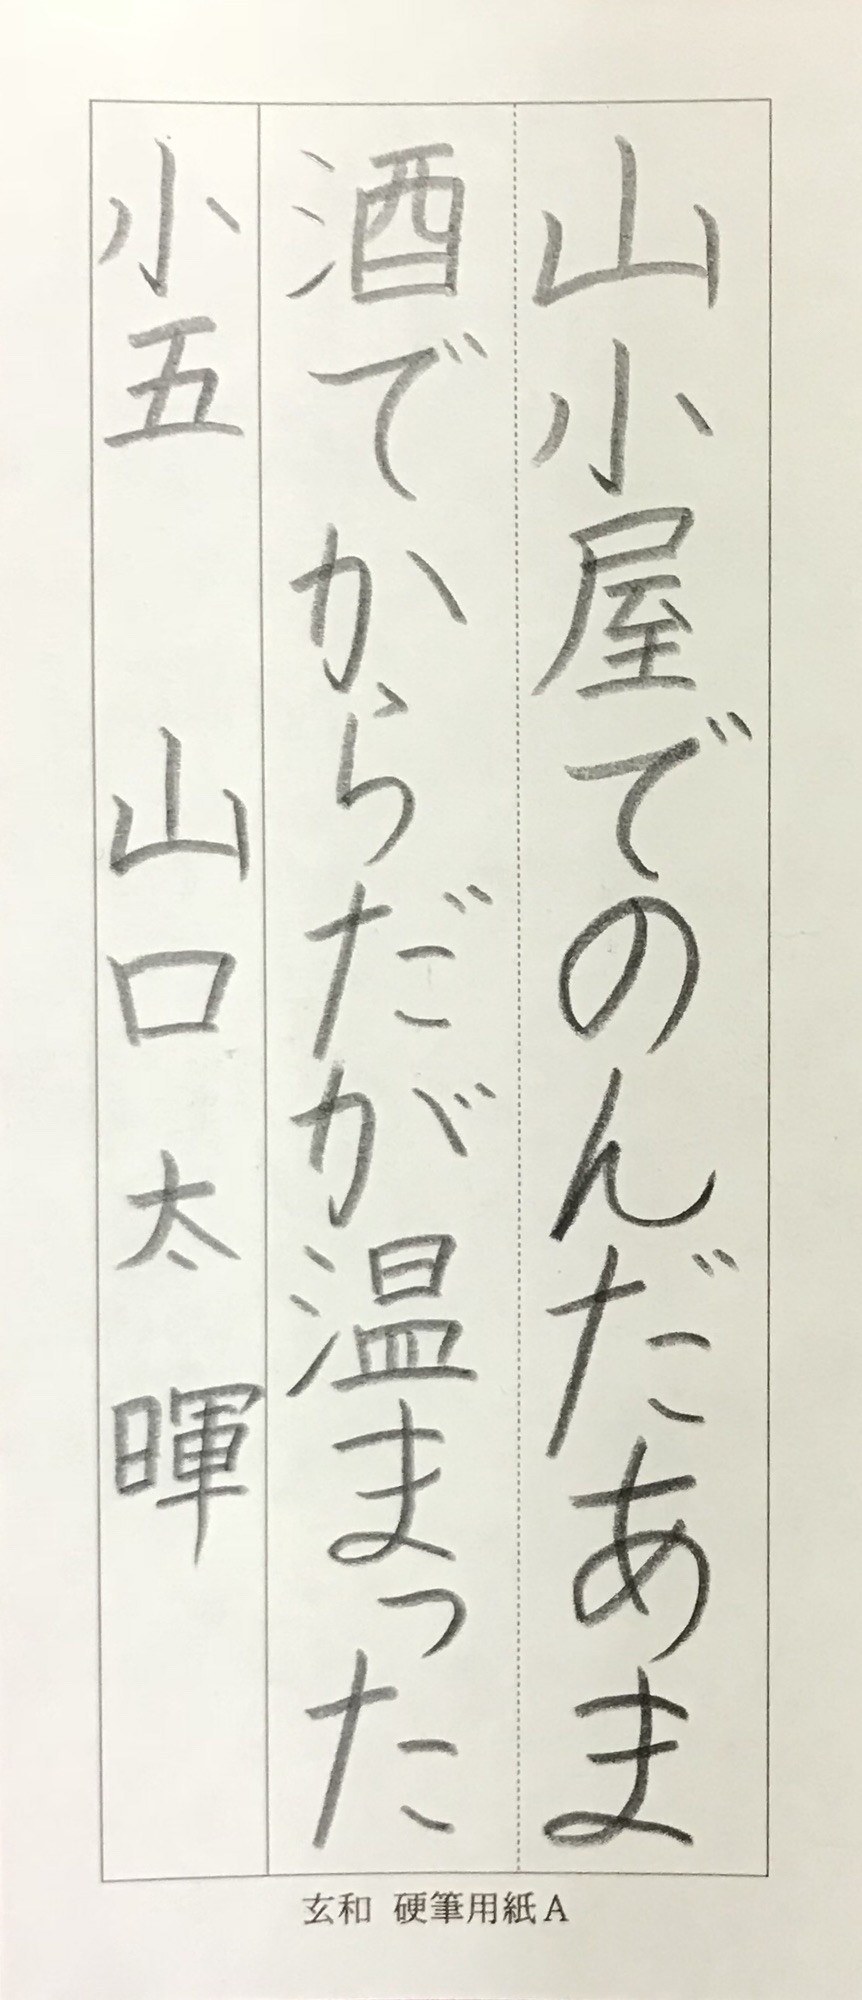 山小屋でのんだあま
酒でからだが温まった
小五 山口太暉
玄和 硬筆用紙A